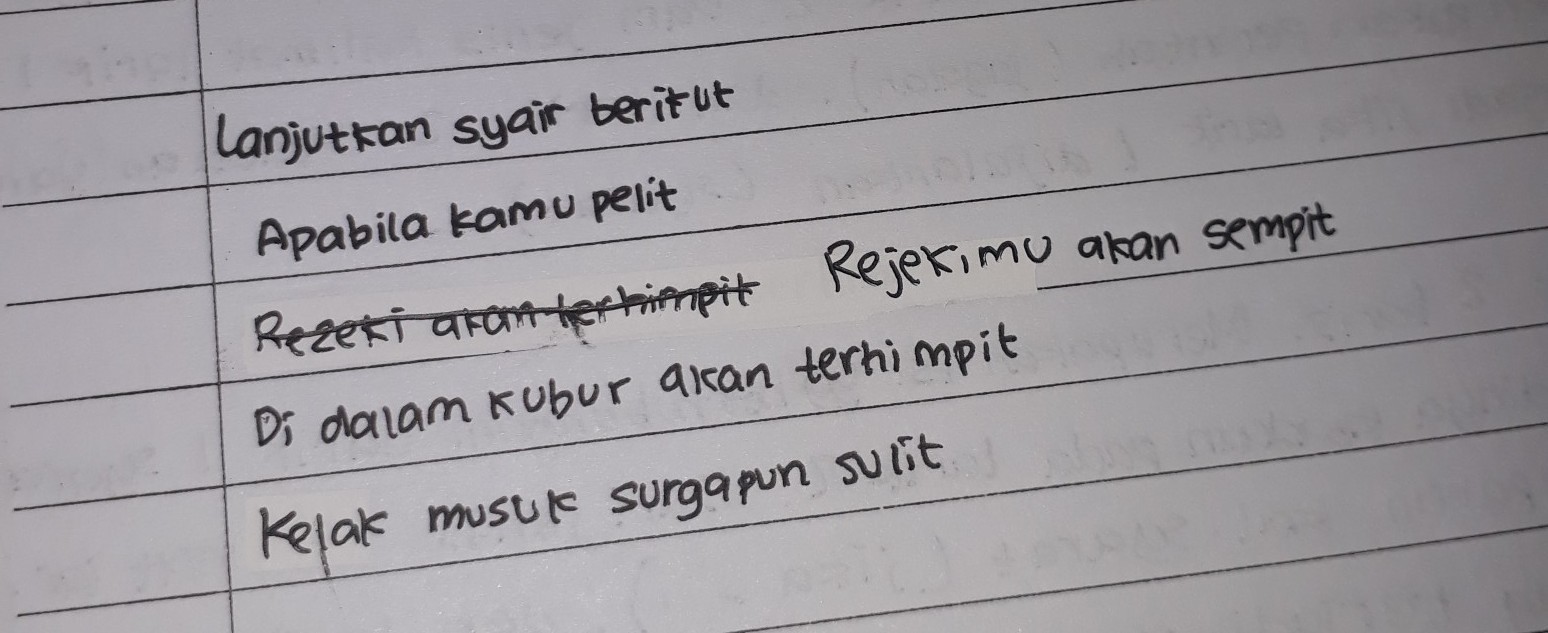 Lanjutkan syair berikut
Apabila kamu pelit
Rezeki akan terhimpit Rejekimu akan sempit
Di dalam kubur akan terhimpit
Kelak musuk surgapun sulit